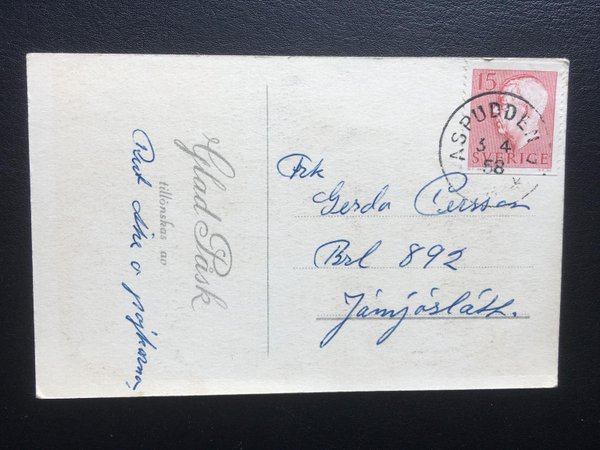 Glad Påsk
tillönskas av
Rut o pojkarna
15
SVERIGE
ASPUDDEN
3 4
58
Frk
Gerda Persson
Brl 892
Jämjöslätt.